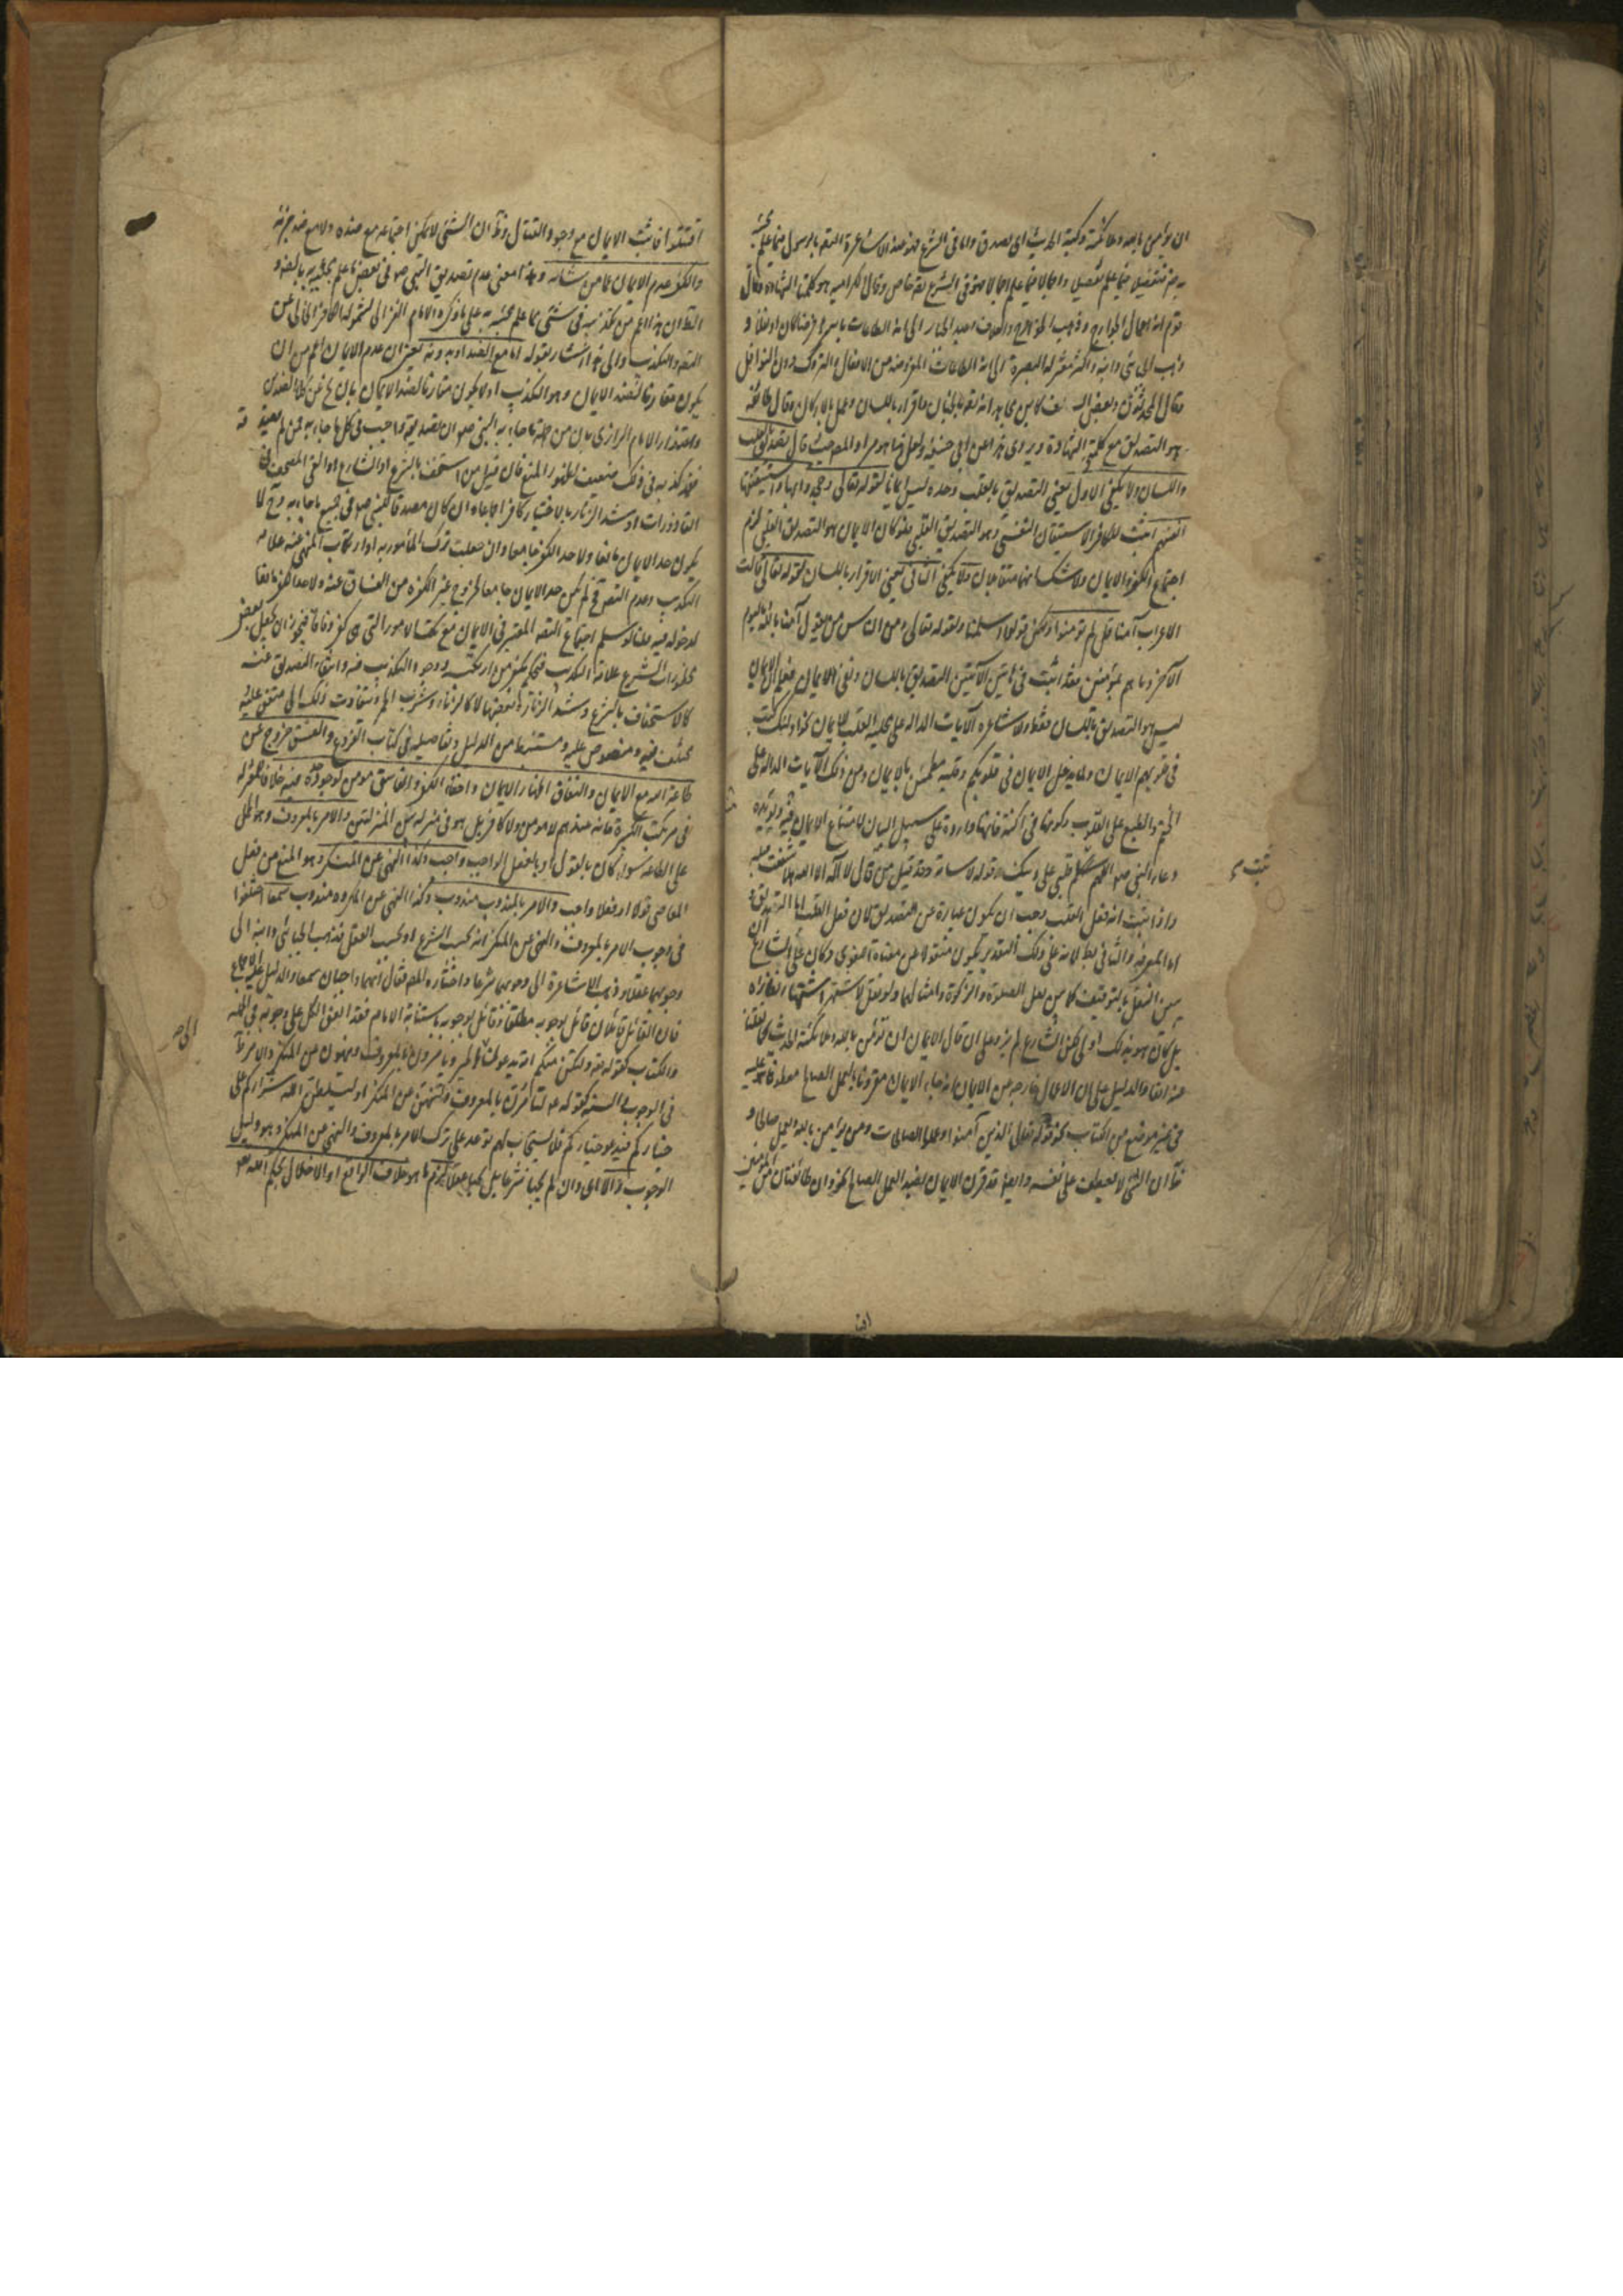 ان يؤمن بالله وملائكته وكتبه الحديث اى يصدق واما فى الشرع فهو عند الاشاعرة التصديق بالرسول فيما علم مجيئه
به ضرورة تفصيلا فيما علم تفصيلا واجمالا فيما علم اجمالا فهو فى الشرع تصديق خاص وقال الكرامية هو كلمتا الشهادة وقال
قوم انه اعمال الجوارح وذهب الخوارج والعلاف وعبد الجبار الى انه الطاعات باسرها فرضا كان او نفلا و
ذهب الجبائى وابنه واكثر معتزلة البصرة الى انه الطاعات المفترضة من الافعال والتروك دون النوافل
وقال المحدثون وبعض السلف كابن مجاهد انه تصديق بالجنان واقرار باللسان وعمل بالاركان وقال طائفة
هو التصديق مع كلمتى الشهادة ويروى هذا عن ابى حنيفة ولعل هذا هو مراد المصنف حيث قال تصديق بالقلب
واللسان ولا يكفى الاول يعنى التصديق بالقلب وحده ليس ايمانا لقوله تعالى وجحدوا بها واستيقنتها
انفسهم اثبت للكفار الاستيقان النفسى وهو التصديق القلبى فلو كان الايمان هو التصديق القلبى لزم
اجتماع الكفر والايمان ولا شك انهما متقابلان ولا يكفى الثانى يعنى الاقرار باللسان لقوله تعالى قالت
الاعراب آمنا قل لم تؤمنوا ولكن قولوا اسلمنا ولقوله تعالى ومن الناس من يقول آمنا بالله وباليوم
الآخر وما هم بمؤمنين فقد اثبت فى هاتين الآيتين التصديق باللسان ونفى الايمان فعلم ان الايمان
ليس هو التصديق باللسان فقط والاشاعرة الآيات الدالة على محلية القلب للايمان نحو اولئك كتب
فى قلوبهم الايمان ولما يدخل الايمان فى قلوبكم وقلبه مطمئن بالايمان ومن ذلك الآيات الدالة على
الختم والطبع على القلوب وكونها فى اكنة فانها واردة على سبيل البيان لامتناع الايمان فيه ويؤيده
دعاء النبى صلعم اللهم ثبت قلبى على دينك وقوله لاسامة وقد قتل من قال لا اله الا الله هلا شققت قلبه
واذا ثبت انه فعل القلب وجب ان يكون عبارة عن التصديق لان فعل القلب اما التصديق و
اما المعرفة والثانى بط لانه على ذلك التقدير يكون منقولا عن معناه اللغوى وكان على الشارع ان
يبين النقل بالتوقيف كما بين نقل الصلوة والزكوة وامثالهما ولو نقل لاشتهر اشتهار نظائره
بل كان هو بذلك اولى لكن الشارع لم يزد على ان قال الايمان ان تؤمن بالله وملائكته الحديث
والدليل على ان الاعمال خارجة من الايمان انه جاء الايمان مقرونا بالعمل الصالح معطوفا عليه
فى غير موضع من الكتاب نحو قوله تعالى الذين آمنوا وعملوا الصالحات ومن يؤمن بالله ويعمل صالحا و
ظ ان الشئ لا يعطف على نفسه وايضا قد قرن الايمان بضد العمل الصالح نحو وان طائفتان من المؤمنين
ثبت
اقتتلوا فاثبت الايمان مع وجود القتال وظ ان الشئ لا يمكن اجتماعه مع ضده ولا مع ضد جزئه
والكفر عدم الايمان عما من شانه وهذا معنى عدم تصديق النبى صلعم فى بعض ما علم مجيئه به بالضرورة
الظ ان هذا اعم من تكذيبه فى شئ مما علم مجيئه به على ما ذكره الامام الغزالى لشموله الكافر الخالى عن
التصديق والتكذيب والى هذا اشار بقوله اما مع الضد او بدونه يعنى ان عدم الايمان اعم من ان
يكون مقارنا لضد الايمان وهو التكذيب او لا يكون مقارنا لضد الايمان بان يخلو عن كلا الضدين
واعتذار الامام الرازى بان من جملة ما جاء به النبى صلعم ان تصديقه واجب فى كل ما جاء به فمن لم يصدقه
فقد كذبه فى ذلك ضعيف لظهور المنع فان قيل من استخف بالشرع او الشارع او القى المصحف فى
القاذورات او شد الزنار بالاختيار كافر اجماعا وان كان مصدقا للنبى صلعم فى جميع ما جاء به وح لا
يكون حد الايمان مانعا ولا حد الكفر جامعا وان جعلت ترك المأمور به او ارتكاب المنهى عنه علامة
التكذيب وعدم التصديق لم يكن حد الايمان جامعا لخروج غير الكفرة من الفساق عنه ولا حد الكفر مانعا
لدخوله فيه قلنا لو سلم اجتماع التصديق المعتبر فى الايمان مع تلك الامور التى هى كفر وفاقا فيجوز ان يجعل بعض
محظورات الشرع علامة التكذيب فيحكم بكفر من ارتكبه ووجود التكذيب فيه وانتفاء التصديق عنه
كالاستخفاف بالشرع وشد الزنار وبعضها لا كالزناء وشرب الخمر ويتفاوت ذلك الى متفق عليه
ومختلف فيه ومنصوص عليه ومستنبط من الدليل وتفاصيله فى كتاب الفروع والفسق خروج عن
طاعة الله مع الايمان والنفاق اظهار الايمان واخفاء الكفر والفاسق مؤمن لوجود حده فيه خلافا للمعتزلة
فى مرتكب الكبيرة فانه عندهم لا مؤمن ولا كافر بل هو فى منزلة بين المنزلتين والامر بالمعروف وهو الحمل
على الطاعة سواء كان بالقول او بالفعل الواجب واجب وكذا النهى عن المنكر وهو المنع من فعل
المعاصى قولا او فعلا واجب والامر بالمندوب مندوب وكذا النهى عن المكروه مندوب سمعا اختلفوا
فى وجوب الامر بالمعروف والنهى عن المنكر انه بحسب الشرع او بحسب العقل فذهب الجبائى وابنه الى
وجوبهما عقلا وذهب الاشاعرة الى وجوبهما شرعا واختاره المصنف فقال انهما واجبان سمعا والدليل عليه الاجماع
فان القائل قائلان قائل بوجوبه مطلقا وقائل بوجوبه باستنابة الامام فقد اتفق الكل على وجوبه فى الجملة
والكتاب كقوله تعالى ولتكن منكم امة يدعون الى الخير ويأمرون بالمعروف وينهون عن المنكر والامر ظ
فى الوجوب والسنة كقوله عم لتأمرن بالمعروف ولتنهن عن المنكر او ليسلطن الله شراركم على
خياركم فيدعو خياركم فلا يستجاب لهم توعد على ترك الامر بالمعروف والنهى عن المنكر وهو دليل
الوجوب والا اى وان لم يجبا شرعا بل يجبا عقلا لزم ما هو خلاف الواقع او الاخلال بحكم الله تعالى